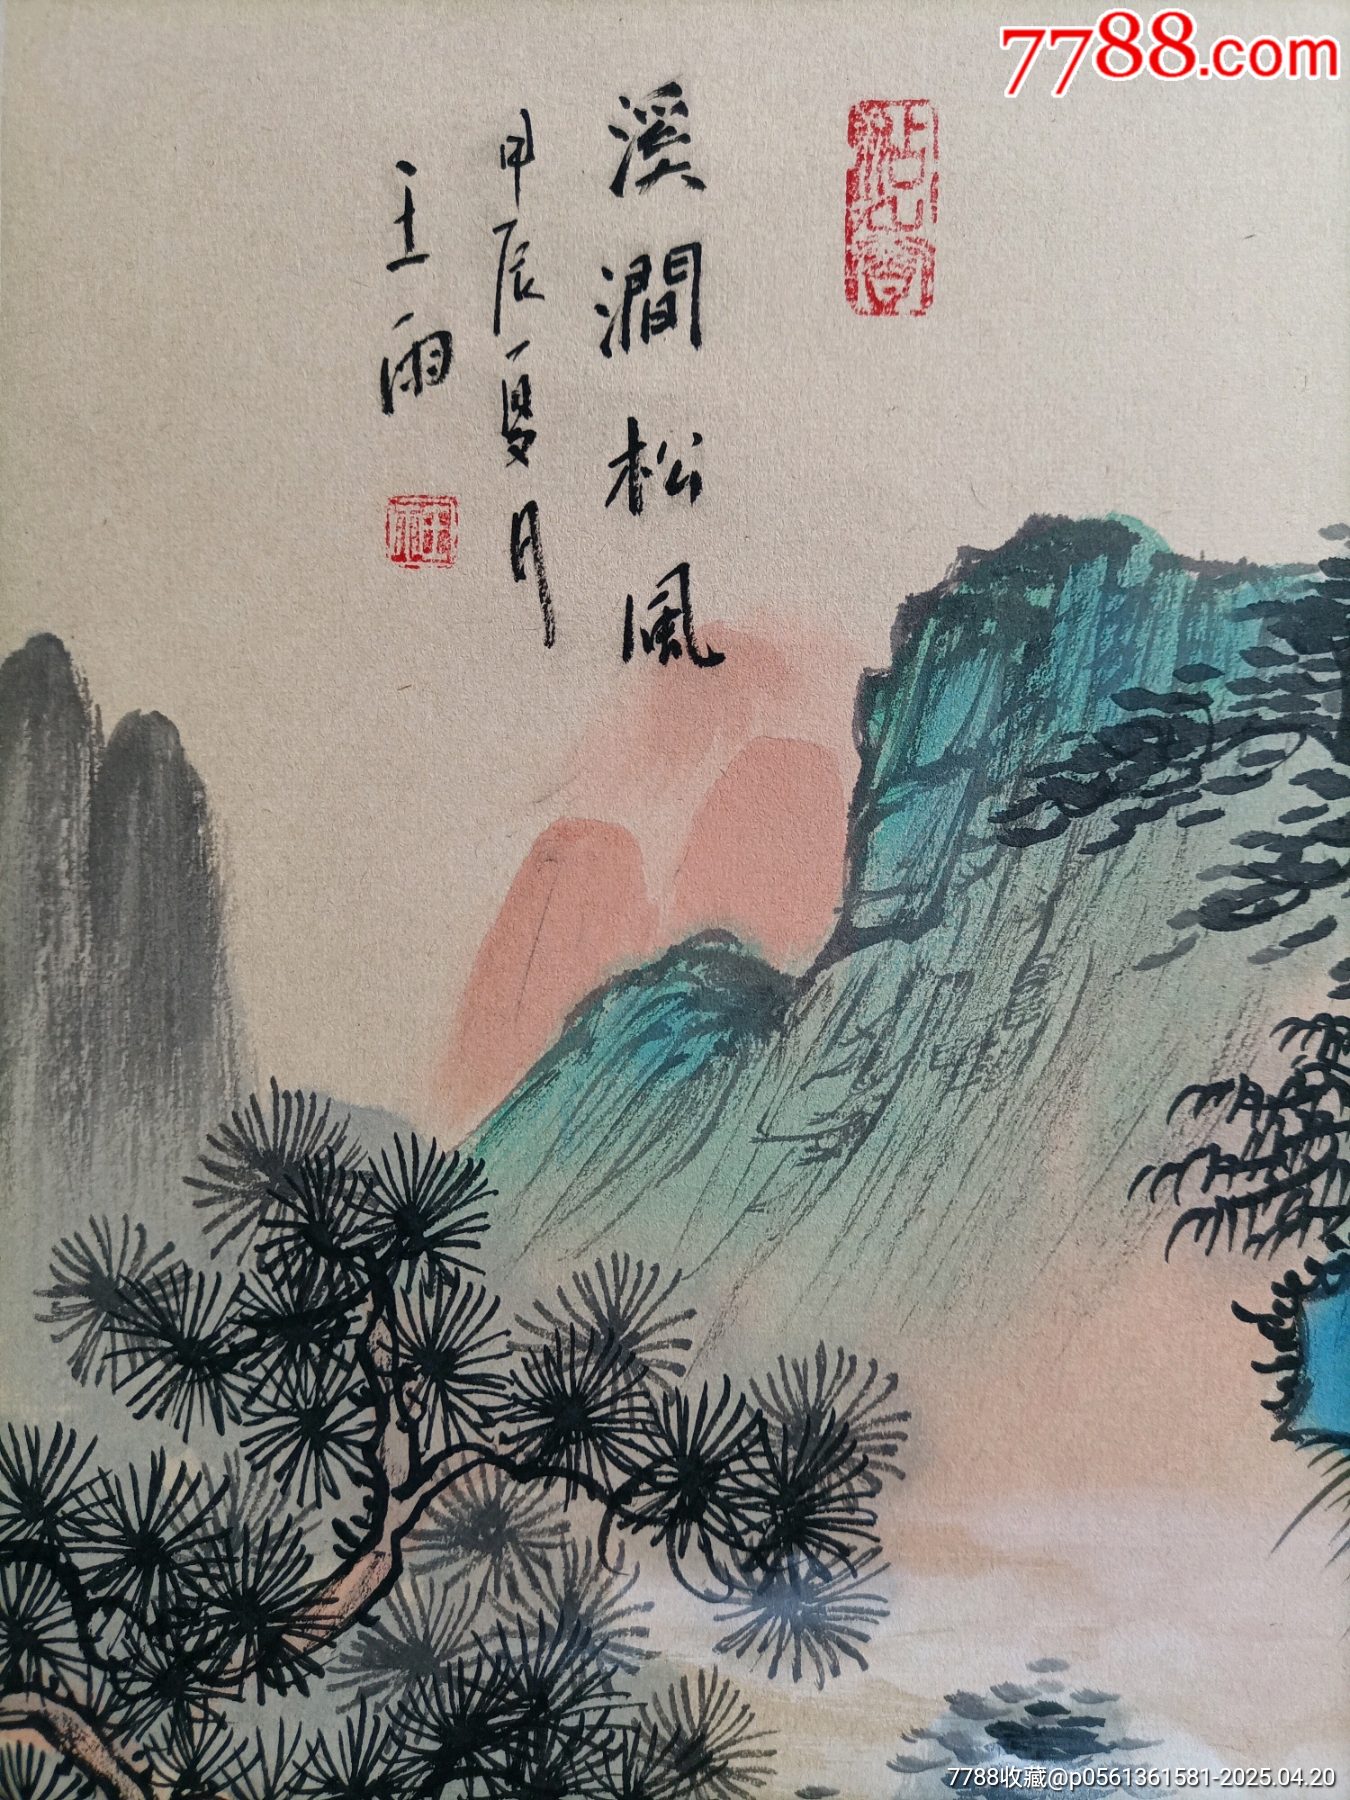 7788.com
溪澗松風
甲辰夏月
王雨
7788收藏@p0561361581-2025.04.20